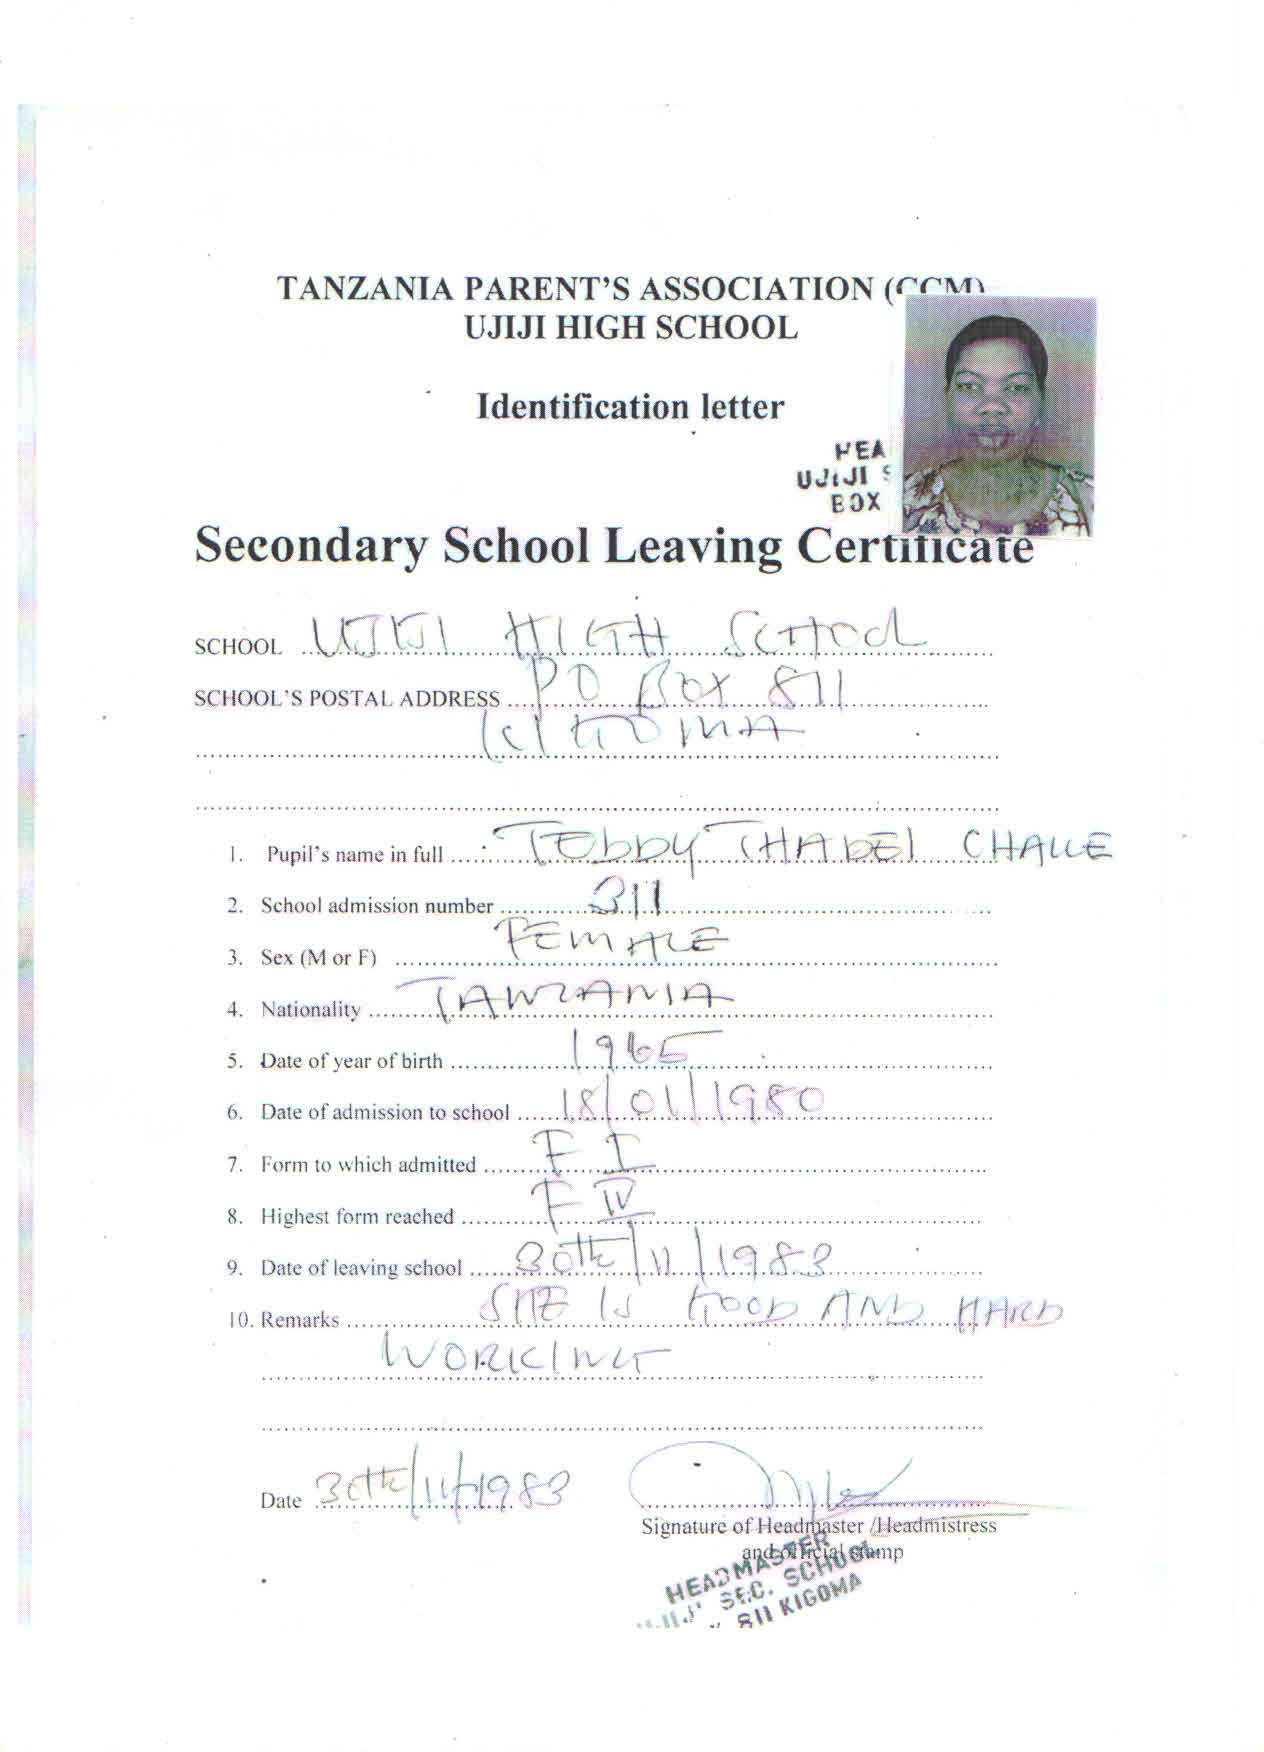 TANZANIA PARENT'S ASSOCIATION (CCM)
UJIJI HIGH SCHOOL
Identification letter
HEA
UJIJI S
BOX
Secondary School Leaving Certificate
SCHOOL UJIJI HIGH SCHOOL
SCHOOL'S POSTAL ADDRESS PO BOX 811
KIGOMA
1. Pupil's name in full TEDDY THADEI CHALLE
2. School admission number 311
3. Sex (M or F) FEMALE
4. Nationality TANZANIA
5. Date of year of birth 1965
6. Date of admission to school 18/01/1980
7. Form to which admitted F I
8. Highest form reached F IV
9. Date of leaving school 30th/11/1983
10. Remarks SHE IS GOOD AND HARD
WORKING
Date 30th/11/1983
Signature of Headmaster /Headmistress
and official stamp
HEADMASTER
UJIJI SEC. SCHOOL
811 KIGOMA